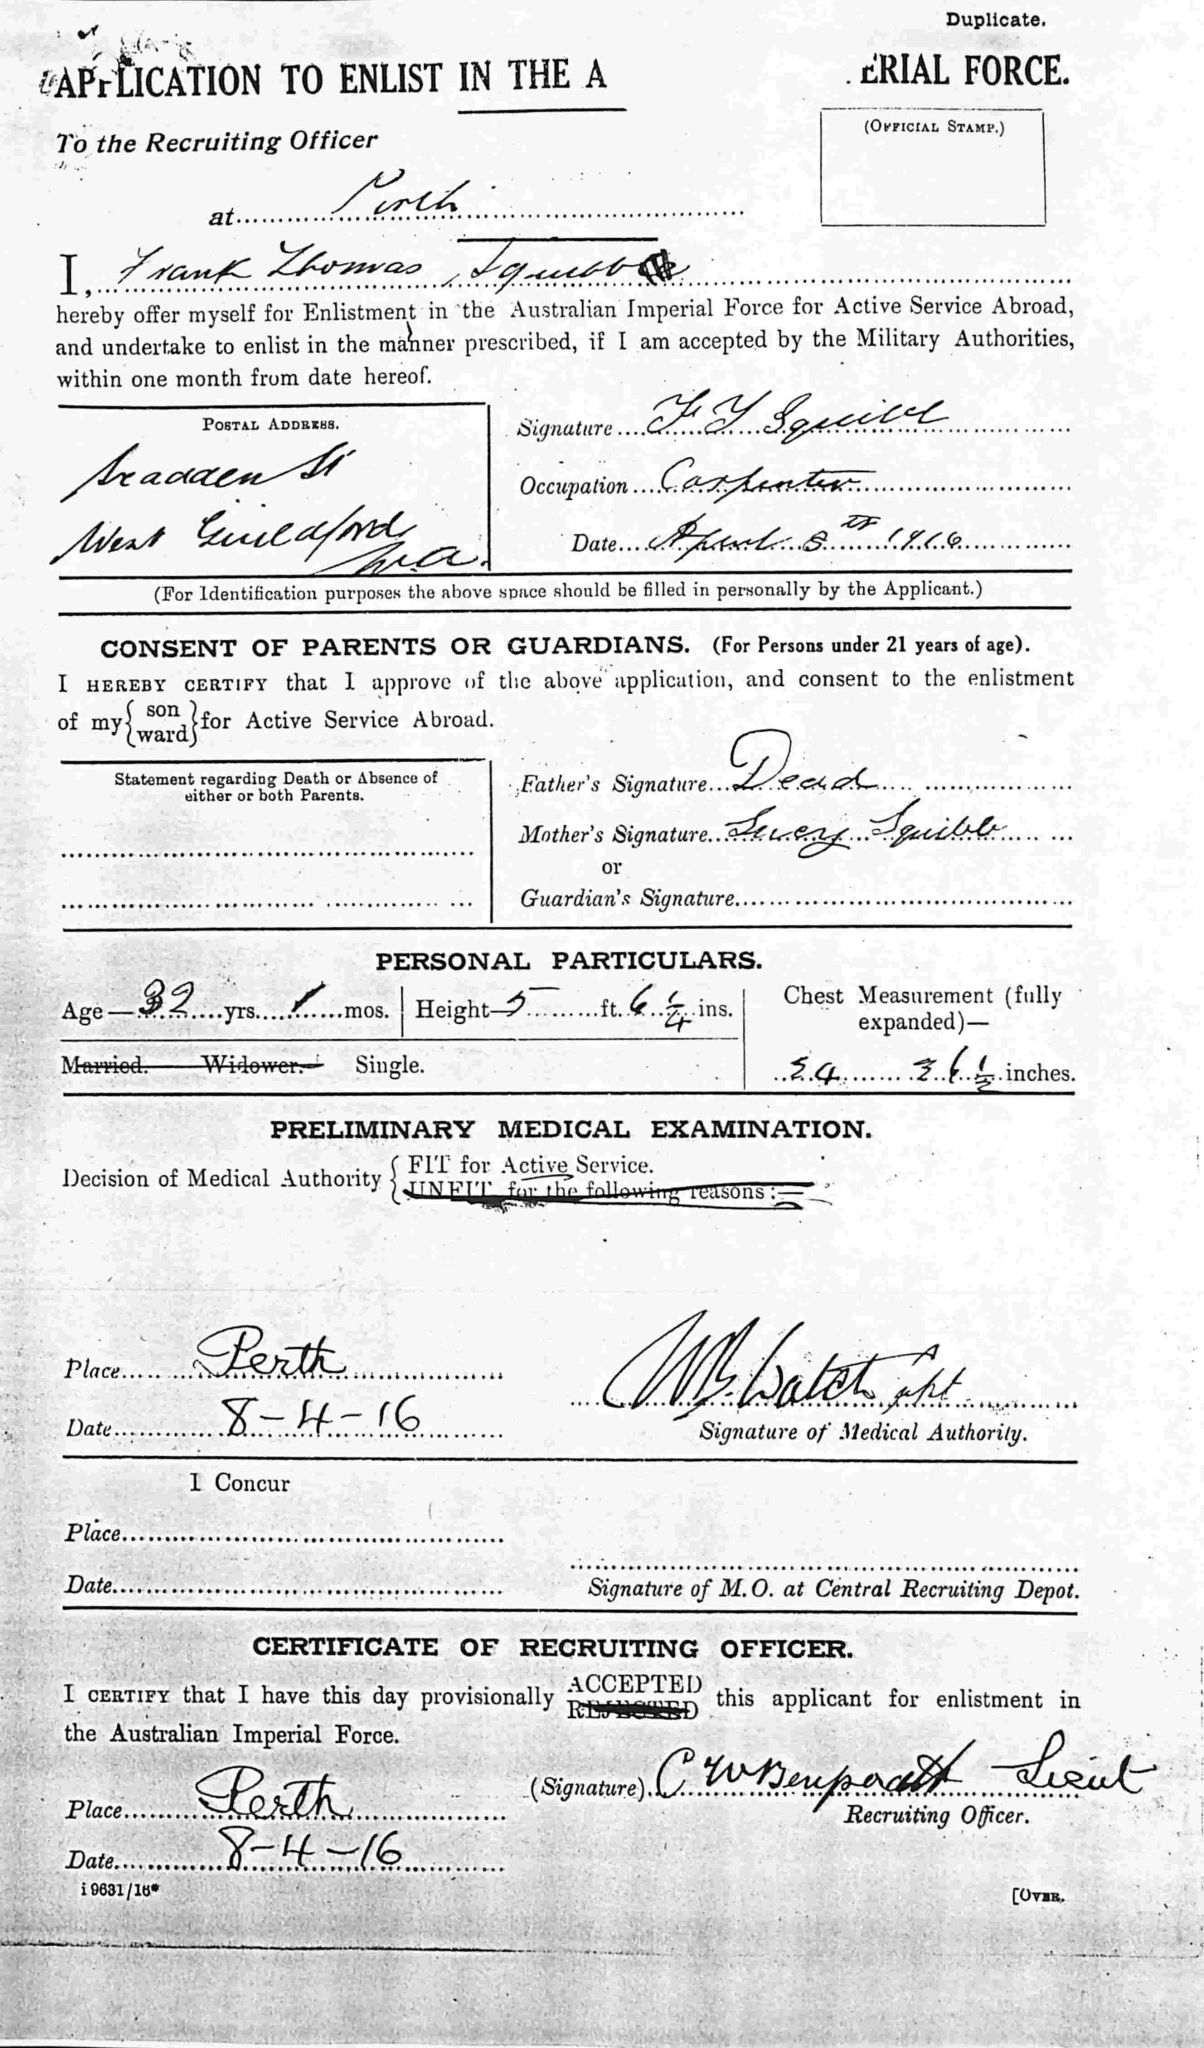 Duplicate.
APPLICATION TO ENLIST IN THE A ERIAL FORCE.
(OFFICIAL STAMP.)
To the Recruiting Officer
at Perth
I, Frank Thomas Squibb
hereby offer myself for Enlistment in the Australian Imperial Force for Active Service Abroad,
and undertake to enlist in the manner prescribed, if I am accepted by the Military Authorities,
within one month from date hereof.
POSTAL ADDRESS.
St
West Guildford
W.A.
Signature F T Squibb
Occupation Carpenter
Date April 8th 1916
(For Identification purposes the above space should be filled in personally by the Applicant.)
CONSENT OF PARENTS OR GUARDIANS. (For Persons under 21 years of age).
I HEREBY CERTIFY that I approve of the above application, and consent to the enlistment
of my { son ward } for Active Service Abroad.
Statement regarding Death or Absence of
either or both Parents.
Father's Signature Dead
Mother's Signature Lucy Squibb
or
Guardian's Signature
PERSONAL PARTICULARS.
Age — 32 yrs. 1 mos. Height 5 ft. 6 1/4 ins.
Chest Measurement (fully
expanded)—
34 36 1/2 inches.
Married. Widower. Single.
PRELIMINARY MEDICAL EXAMINATION.
Decision of Medical Authority { FIT for Active Service.
UNFIT for the following reasons:—
Place Perth
Date 8-4-16
Capt
Signature of Medical Authority.
I Concur
Place
Date
Signature of M.O. at Central Recruiting Depot.
CERTIFICATE OF RECRUITING OFFICER.
I CERTIFY that I have this day provisionally ACCEPTED REJECTED this applicant for enlistment in
the Australian Imperial Force.
(Signature) Lieut
Recruiting Officer.
Place Perth
Date 8-4-16
i 9631/16*
[OVER.